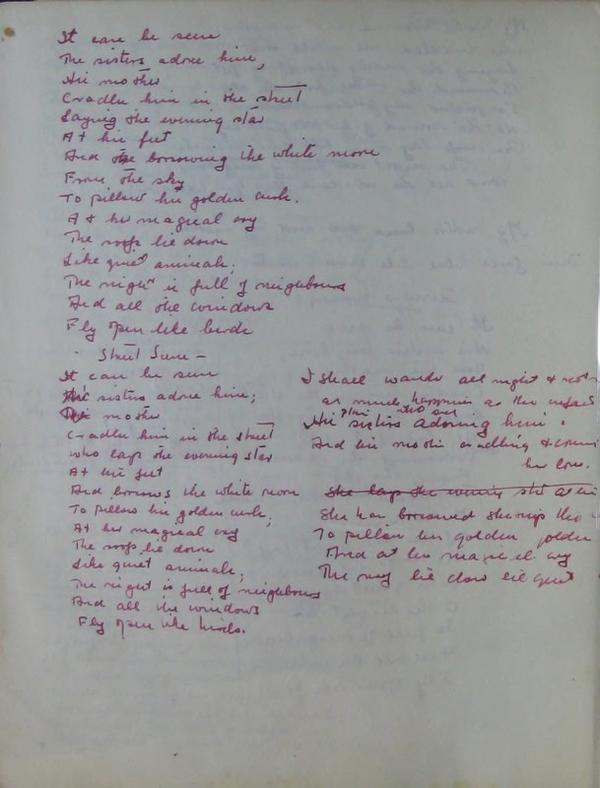 It can be seen
The sisters adore him,
His mother
Cradles him in the street
Laying the evening star
At his feet
And the borrowing the white moon
From the sky
To pillow his golden curls.
At her magical cry
The roofs lie down
Like quiet animals;
The night is full of neighbours
And all the windows
Fly open like birds
Street Scene —
It can be seen
His sisters adore him;
His mother
Cradles him in the street
who lays the evening star
At his feet
And borrows the white moon
To pillow his golden curls,
At her magical cry
The roofs lie down
Like quiet animals;
The night is full of neighbours
And all the windows
Fly open like birds.
I shall wander all night & not
as much happiness as this
His sisters adoring him.
And his mother cradling &
her love.
She lays the evening star at his
She has borrowed the
To pillow his golden golden
And at her magical cry
The lie down like quiet